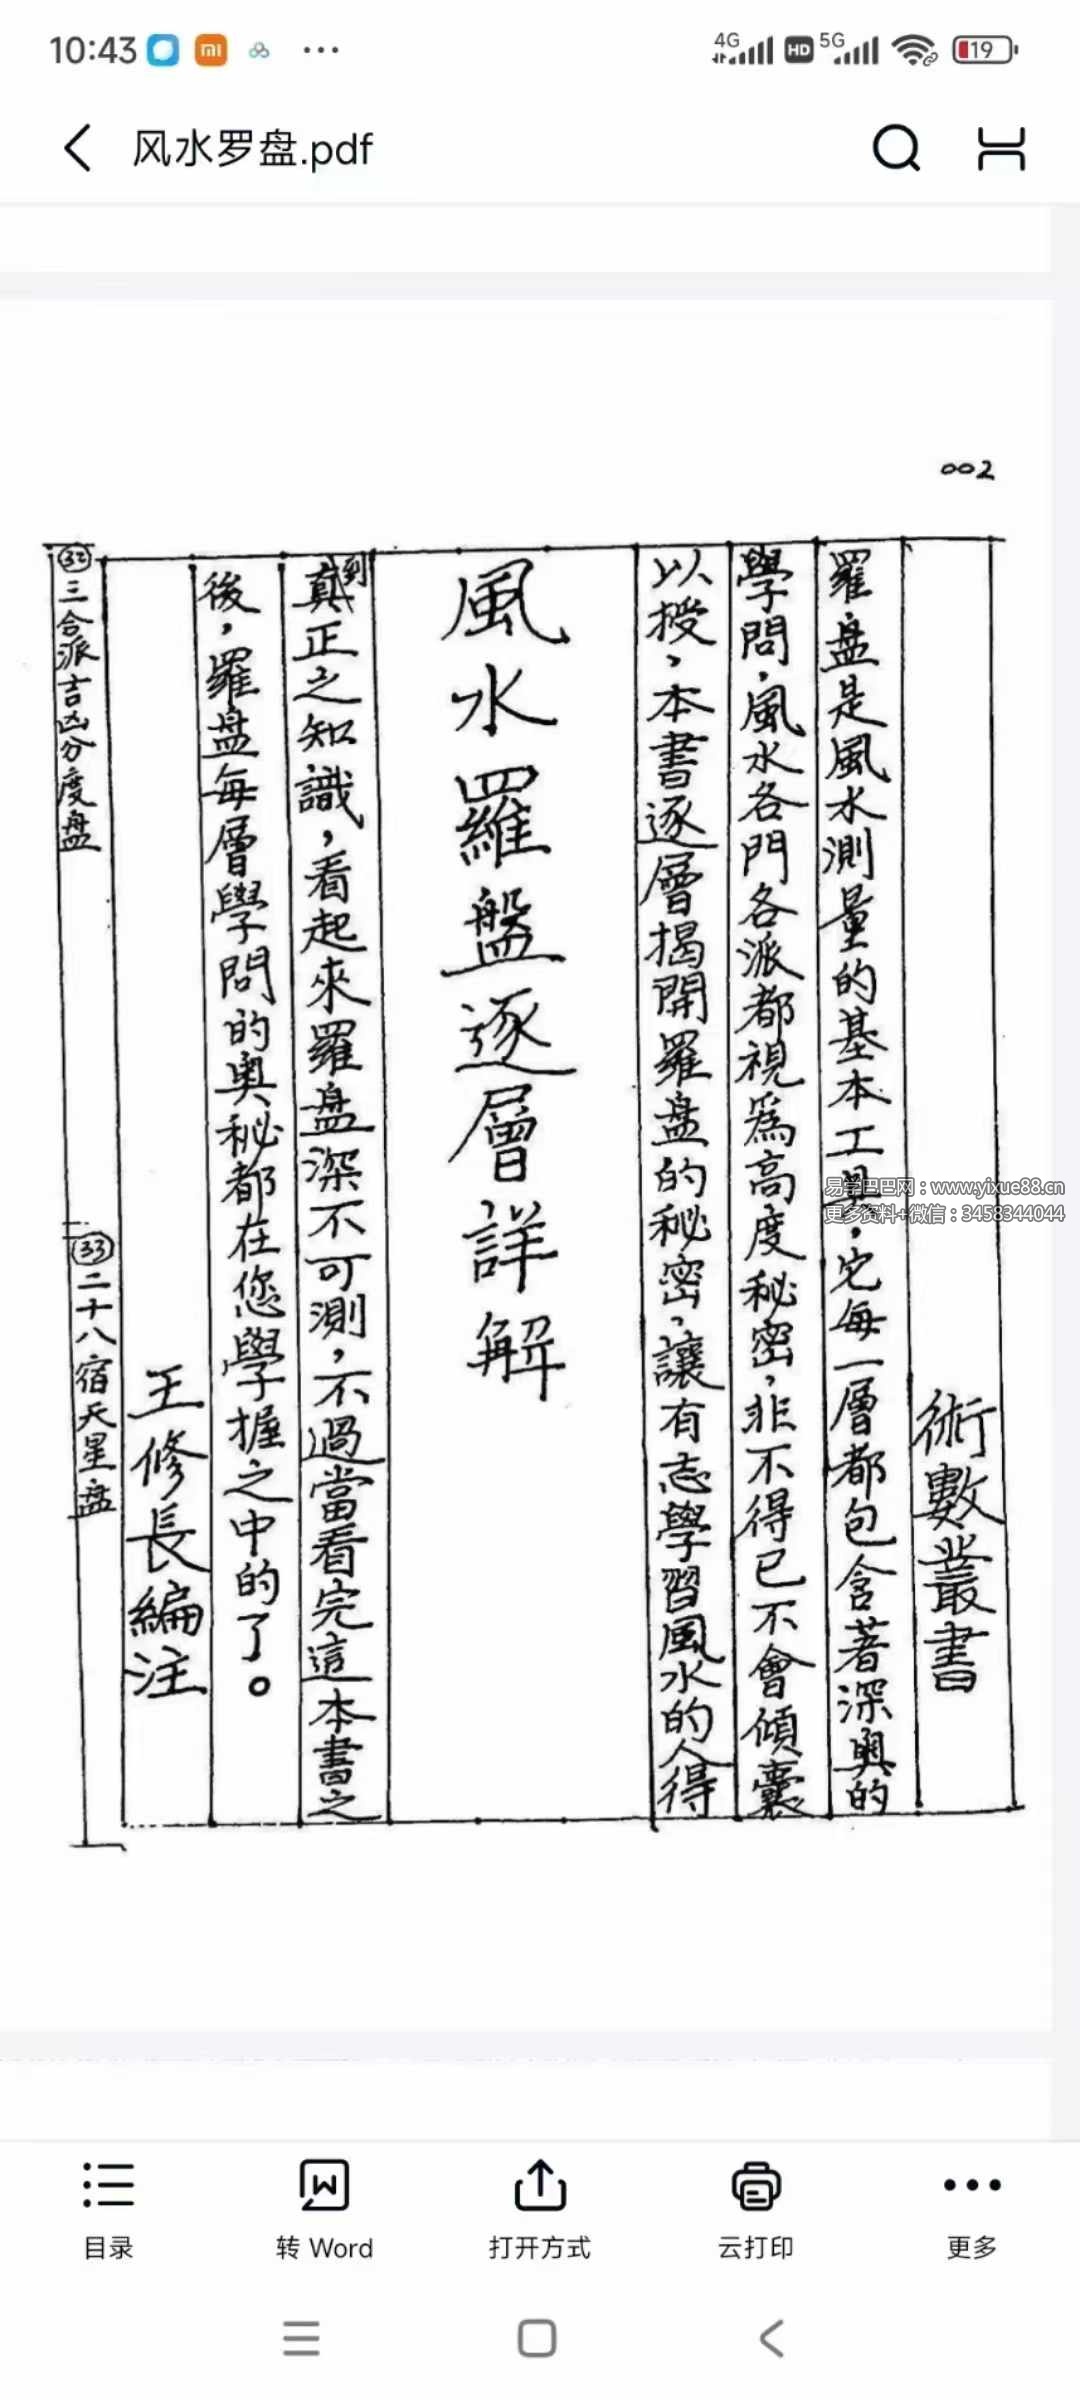 10:43
4G HD 5G 19
风水罗盘.pdf
002
術數叢書
羅盘是風水測量的基本工具，它每一層都包含著深奥的
學問，風水各門各派都視為高度秘密，非不得已不會傾囊
以授，本書逐層揭開羅盘的秘密，讓有志學習風水的人得
風水羅盤逐層詳解
到真正之知識，看起來羅盘深不可測，不過當看完這本書之
後，羅盘每層學問的奥秘都在您學握之中的了。
王修長編注
㉜三合派吉凶分度盘
㉝二十八宿天星盘
易学巴巴网：www.yixue88.cn
更多资料+微信：3458344044
目录
转 Word
打开方式
云打印
更多